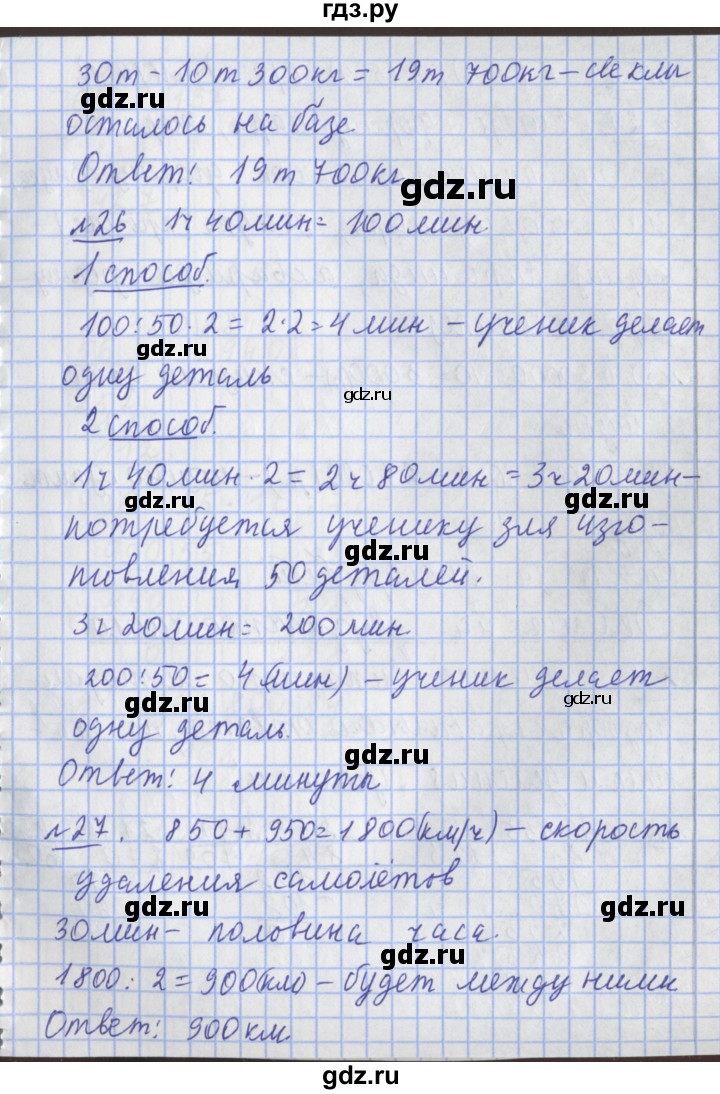 гдз.ру
30т - 10т 300кг = 19т 700кг - свеклы
gdz.ru
осталось на базе
Ответ: 19т 700кг
gdz.ru
№26 1ч 40мин = 100мин
1 способ.
100:50·2 = 2·2 = 4 мин - ученик делает
gdz.ru
одну деталь
gdz.ru
2 способ.
1ч 40мин·2 = 2ч 80мин = 3ч 20мин -
gdz.ru
gdz.ru
потребуется ученику для изго-
gdz.ru
товления 50 деталей.
gdz.ru
3ч 20мин = 200мин
200:50 = 4(мин) - ученик делает
gdz.ru
gdz.ru
одну деталь.
gdz.ru
Ответ: 4 минуты
№27. 850 + 950 = 1800(км/ч) - скорость
gdz.ru
удаления самолётов
gdz.ru
gdz.ru
30мин - половина часа.
gdz.ru
1800:2 = 900(км) - будет между ними
gdz.ru
Ответ: 900км
gdz.ru